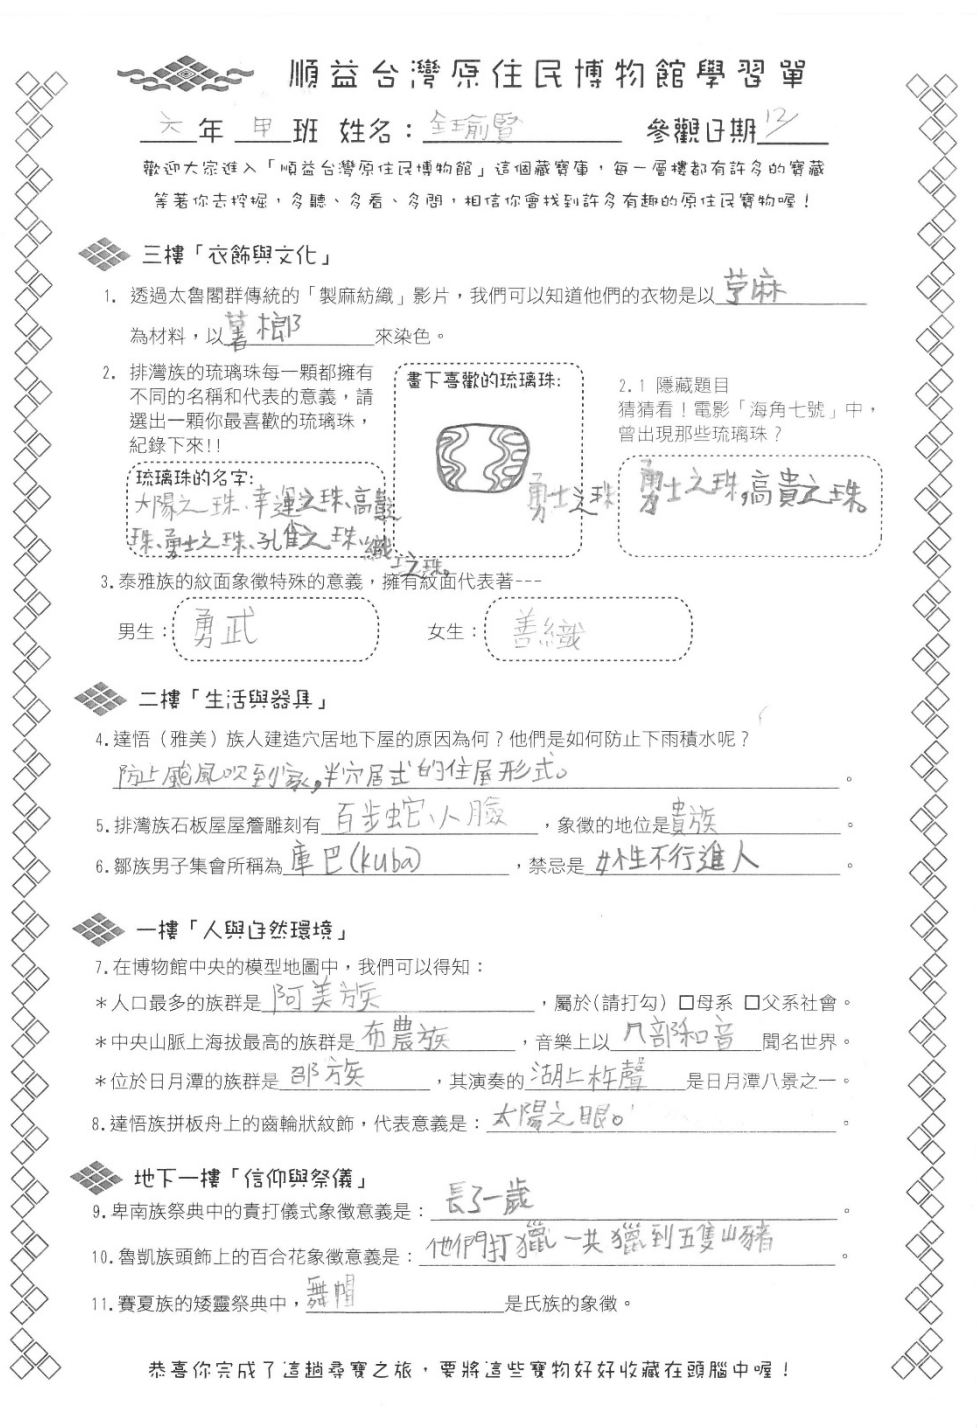 順益台灣原住民博物館學習單
六年 甲班 姓名：全瑜賢 參觀日期12/
歡迎大家進入「順益台灣原住民博物館」這個藏寶庫，每一層樓都有許多的寶藏
等著你去挖掘，多聽、多看、多問，相信你會找到許多有趣的原住民寶物喔！
三樓「衣飾與文化」
1. 透過太魯閣群傳統的「製麻紡織」影片，我們可以知道他們的衣物是以苧麻
為材料，以薯榔來染色。
2. 排灣族的琉璃珠每一顆都擁有
不同的名稱和代表的意義，請
選出一顆你最喜歡的琉璃珠，
紀錄下來!!
琉璃珠的名字:
太陽之珠、幸運之珠、高貴之
珠、勇士之珠、孔雀之珠、織
之珠。
畫下喜歡的琉璃珠:
勇士之珠
2.1 隱藏題目
猜猜看！電影「海角七號」中，
曾出現那些琉璃珠？
勇士之珠,高貴之珠。
3.泰雅族的紋面象徵特殊的意義，擁有紋面代表著---
男生：勇武 女生：善織
二樓「生活與器具」
4.達悟（雅美）族人建造穴居地下屋的原因為何？他們是如何防止下雨積水呢？
防止颱風吹到家,半穴居式的住屋形式。
5.排灣族石板屋屋簷雕刻有百步蛇、人臉，象徵的地位是貴族。
6.鄒族男子集會所稱為庫巴(kuba)，禁忌是女性不行進入。
一樓「人與自然環境」
7.在博物館中央的模型地圖中，我們可以得知：
＊人口最多的族群是阿美族，屬於(請打勾) □母系 □父系社會。
＊中央山脈上海拔最高的族群是布農族，音樂上以八部和音聞名世界。
＊位於日月潭的族群是邵族，其演奏的湖上杵聲是日月潭八景之一。
8.達悟族拼板舟上的齒輪狀紋飾，代表意義是：太陽之眼。
地下一樓「信仰與祭儀」
9.卑南族祭典中的責打儀式象徵意義是：長了一歲。
10.魯凱族頭飾上的百合花象徵意義是：他們打獵一共獵到五隻山豬。
11.賽夏族的矮靈祭典中，舞帽是氏族的象徵。
恭喜你完成了這趟尋寶之旅，要將這些寶物好好收藏在頭腦中喔！